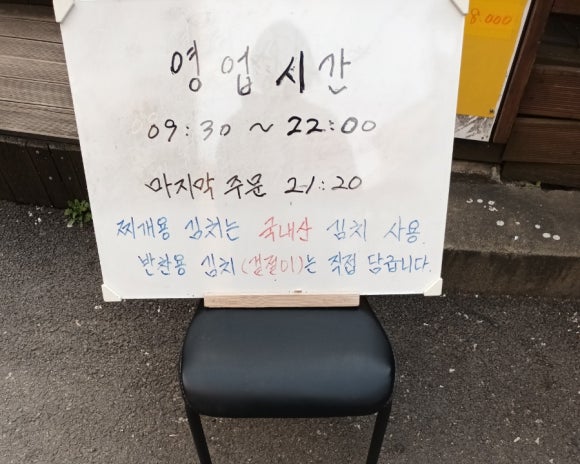 8.000
영업시간
09:30 ~ 22:00
마지막 주문 21:20
찌개용 김치는 국내산 김치 사용
반찬용 김치(겉절이)는 직접 담급니다.